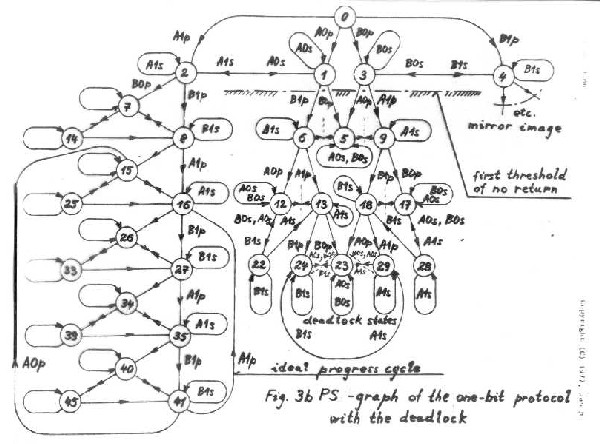 0
A1p A0p B0p B1p
A0s B0s
A1s 2 A1s A0s 1 3 B0s B1s 4 B1s
B0p B1p B1p B0p A0p A1p etc.
7 mirror image
14 8 B1s B1s 6 5 9 A1s
A0s, B0s
first threshold
of no return
15 A1p A0p A1p B1p B0p
A0s B0s B1s B0s A0s
25 16 A1s 12 13 18 17
B0s, A0s A1s A1s B1s A0s, B0s
26 B1p B1s B1p B0p A0p A1p A1s
33 27 B1s 22 24 23 29 28
B1s B1s A0s B0s A1s A1s
34 A1p deadlock states
39 35 A1s B1s A1s
A0p 40 B1p A1p ideal progress cycle
45 41 B1s
Fig. 3b PS -graph of the one-bit protocol
with the deadlock